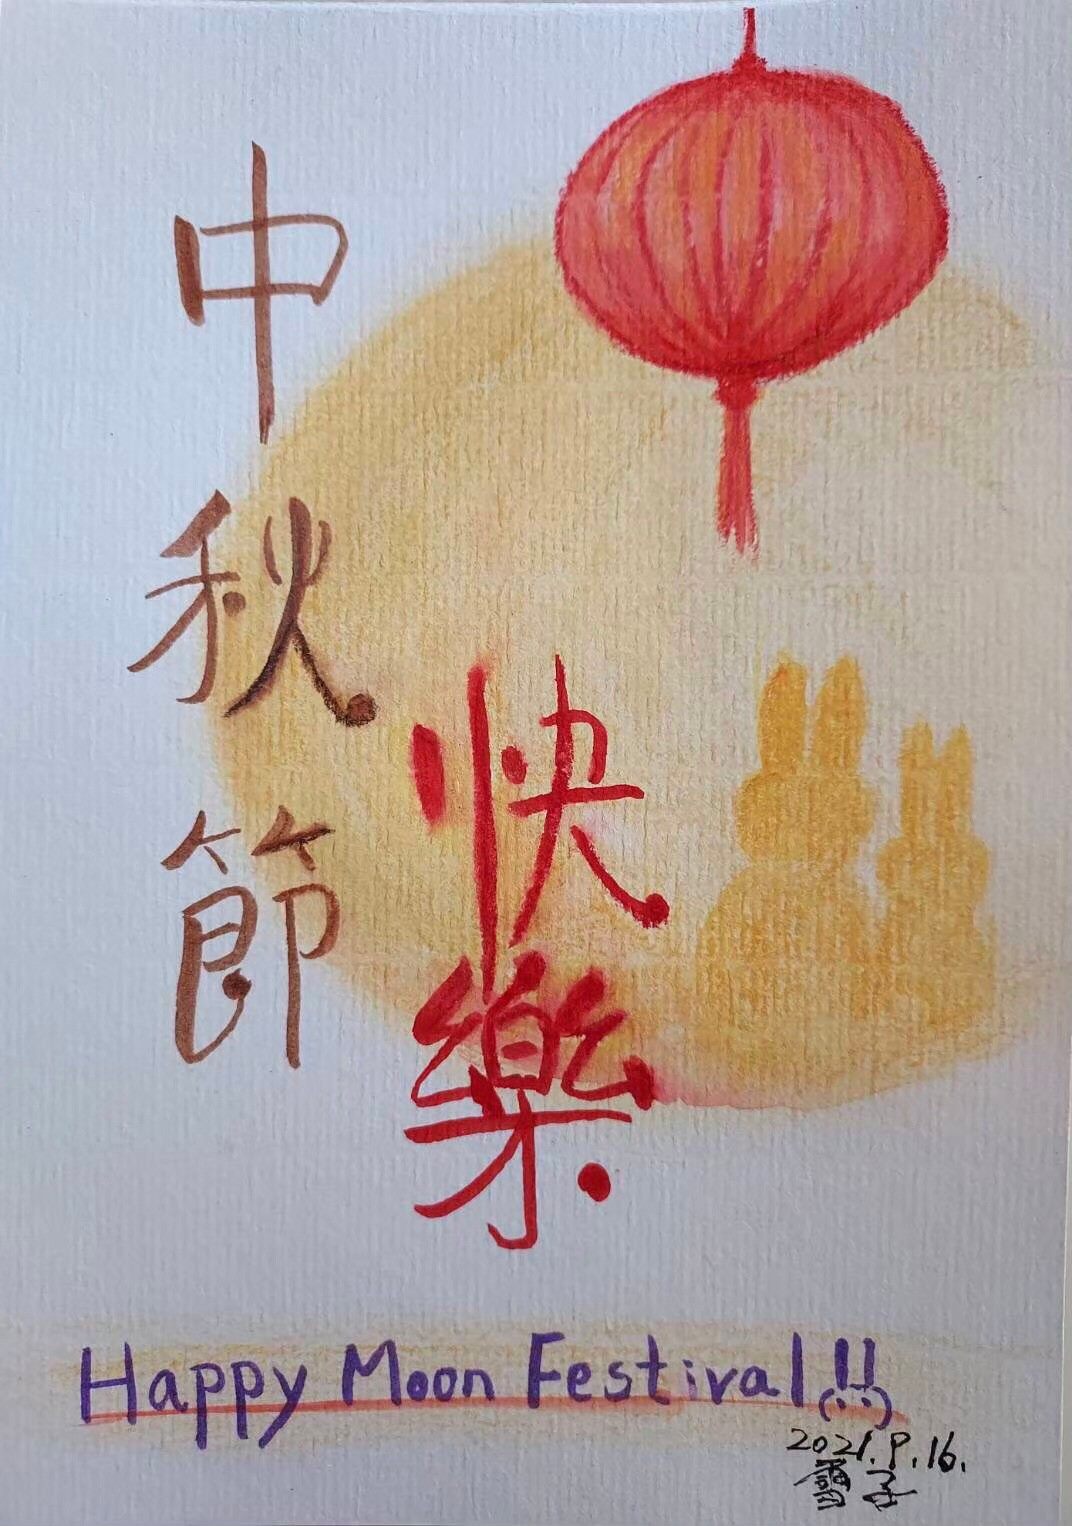 中秋節
快樂
Happy Moon Festival!!
2021.9.16.
雪子